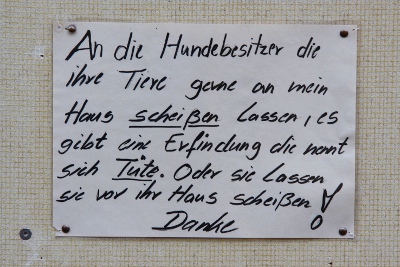 An die Hundebesitzer die
ihre Tiere gerne an mein
Haus scheißen lassen, es
gibt eine Erfindung die nennt
sich Tüte. Oder sie lassen
sie vor ihr Haus scheißen!
Danke